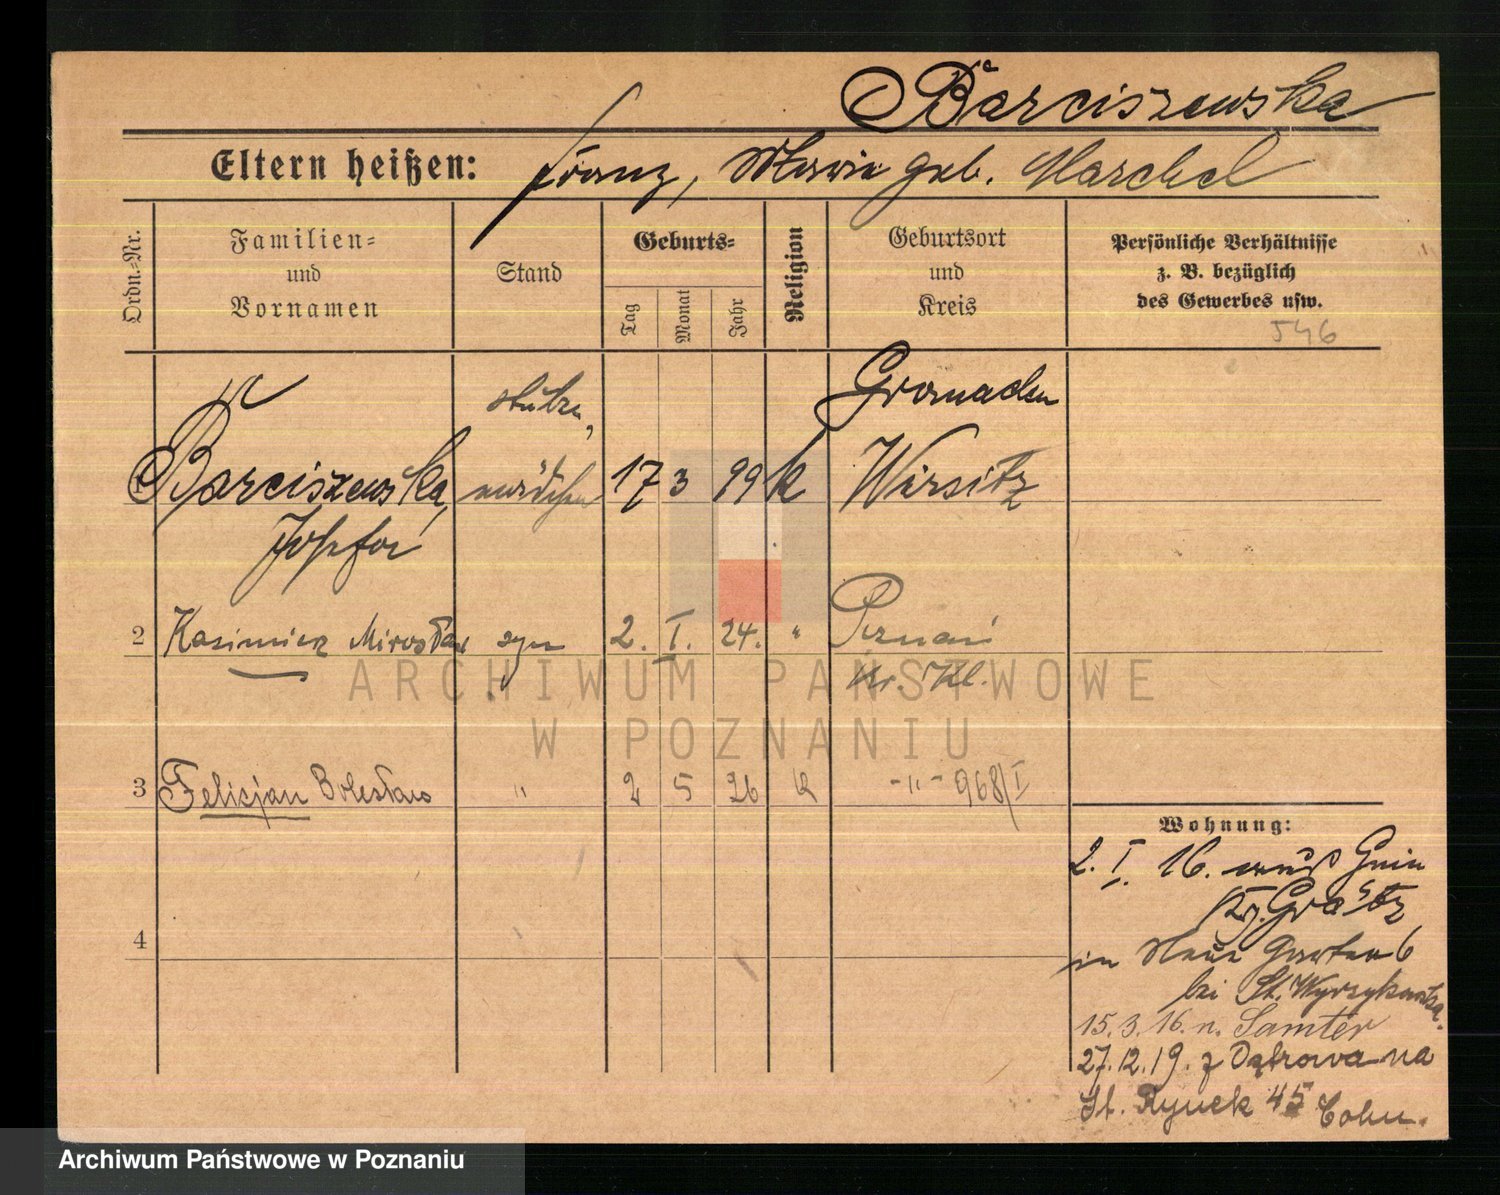 Barciszewska
Eltern heißen: Franz, Maria geb. Marchel
Ordn.-Nr.
Familien-
und
Vornamen
Stand
Geburts-
Tag
Monat
Jahr
Religion
Geburtsort
und
Kreis
Persönliche Verhältnisse
z. B. bezüglich
des Gewerbes usw.
546
Gromaden
Barciszewska, 17 3 99 k Wirsitz
Josefa
2 Kasimierz Mirosław syn 2. I. 24. " Poznań
3 Felicjan Bolesław " 2 5 26 k -"- 968/I
4
Wohnung:
2. I. 16. Gnin
Grätz
in Neue Garten 6
bei St. Wyrzykowska.
15.3.16. n. Samter
27.12.19. z Dąbrowa na
St. Rynek 45 Cohn.
ARCHIWUM PAŃSTWOWE
W POZNANIU
Archiwum Państwowe w Poznaniu